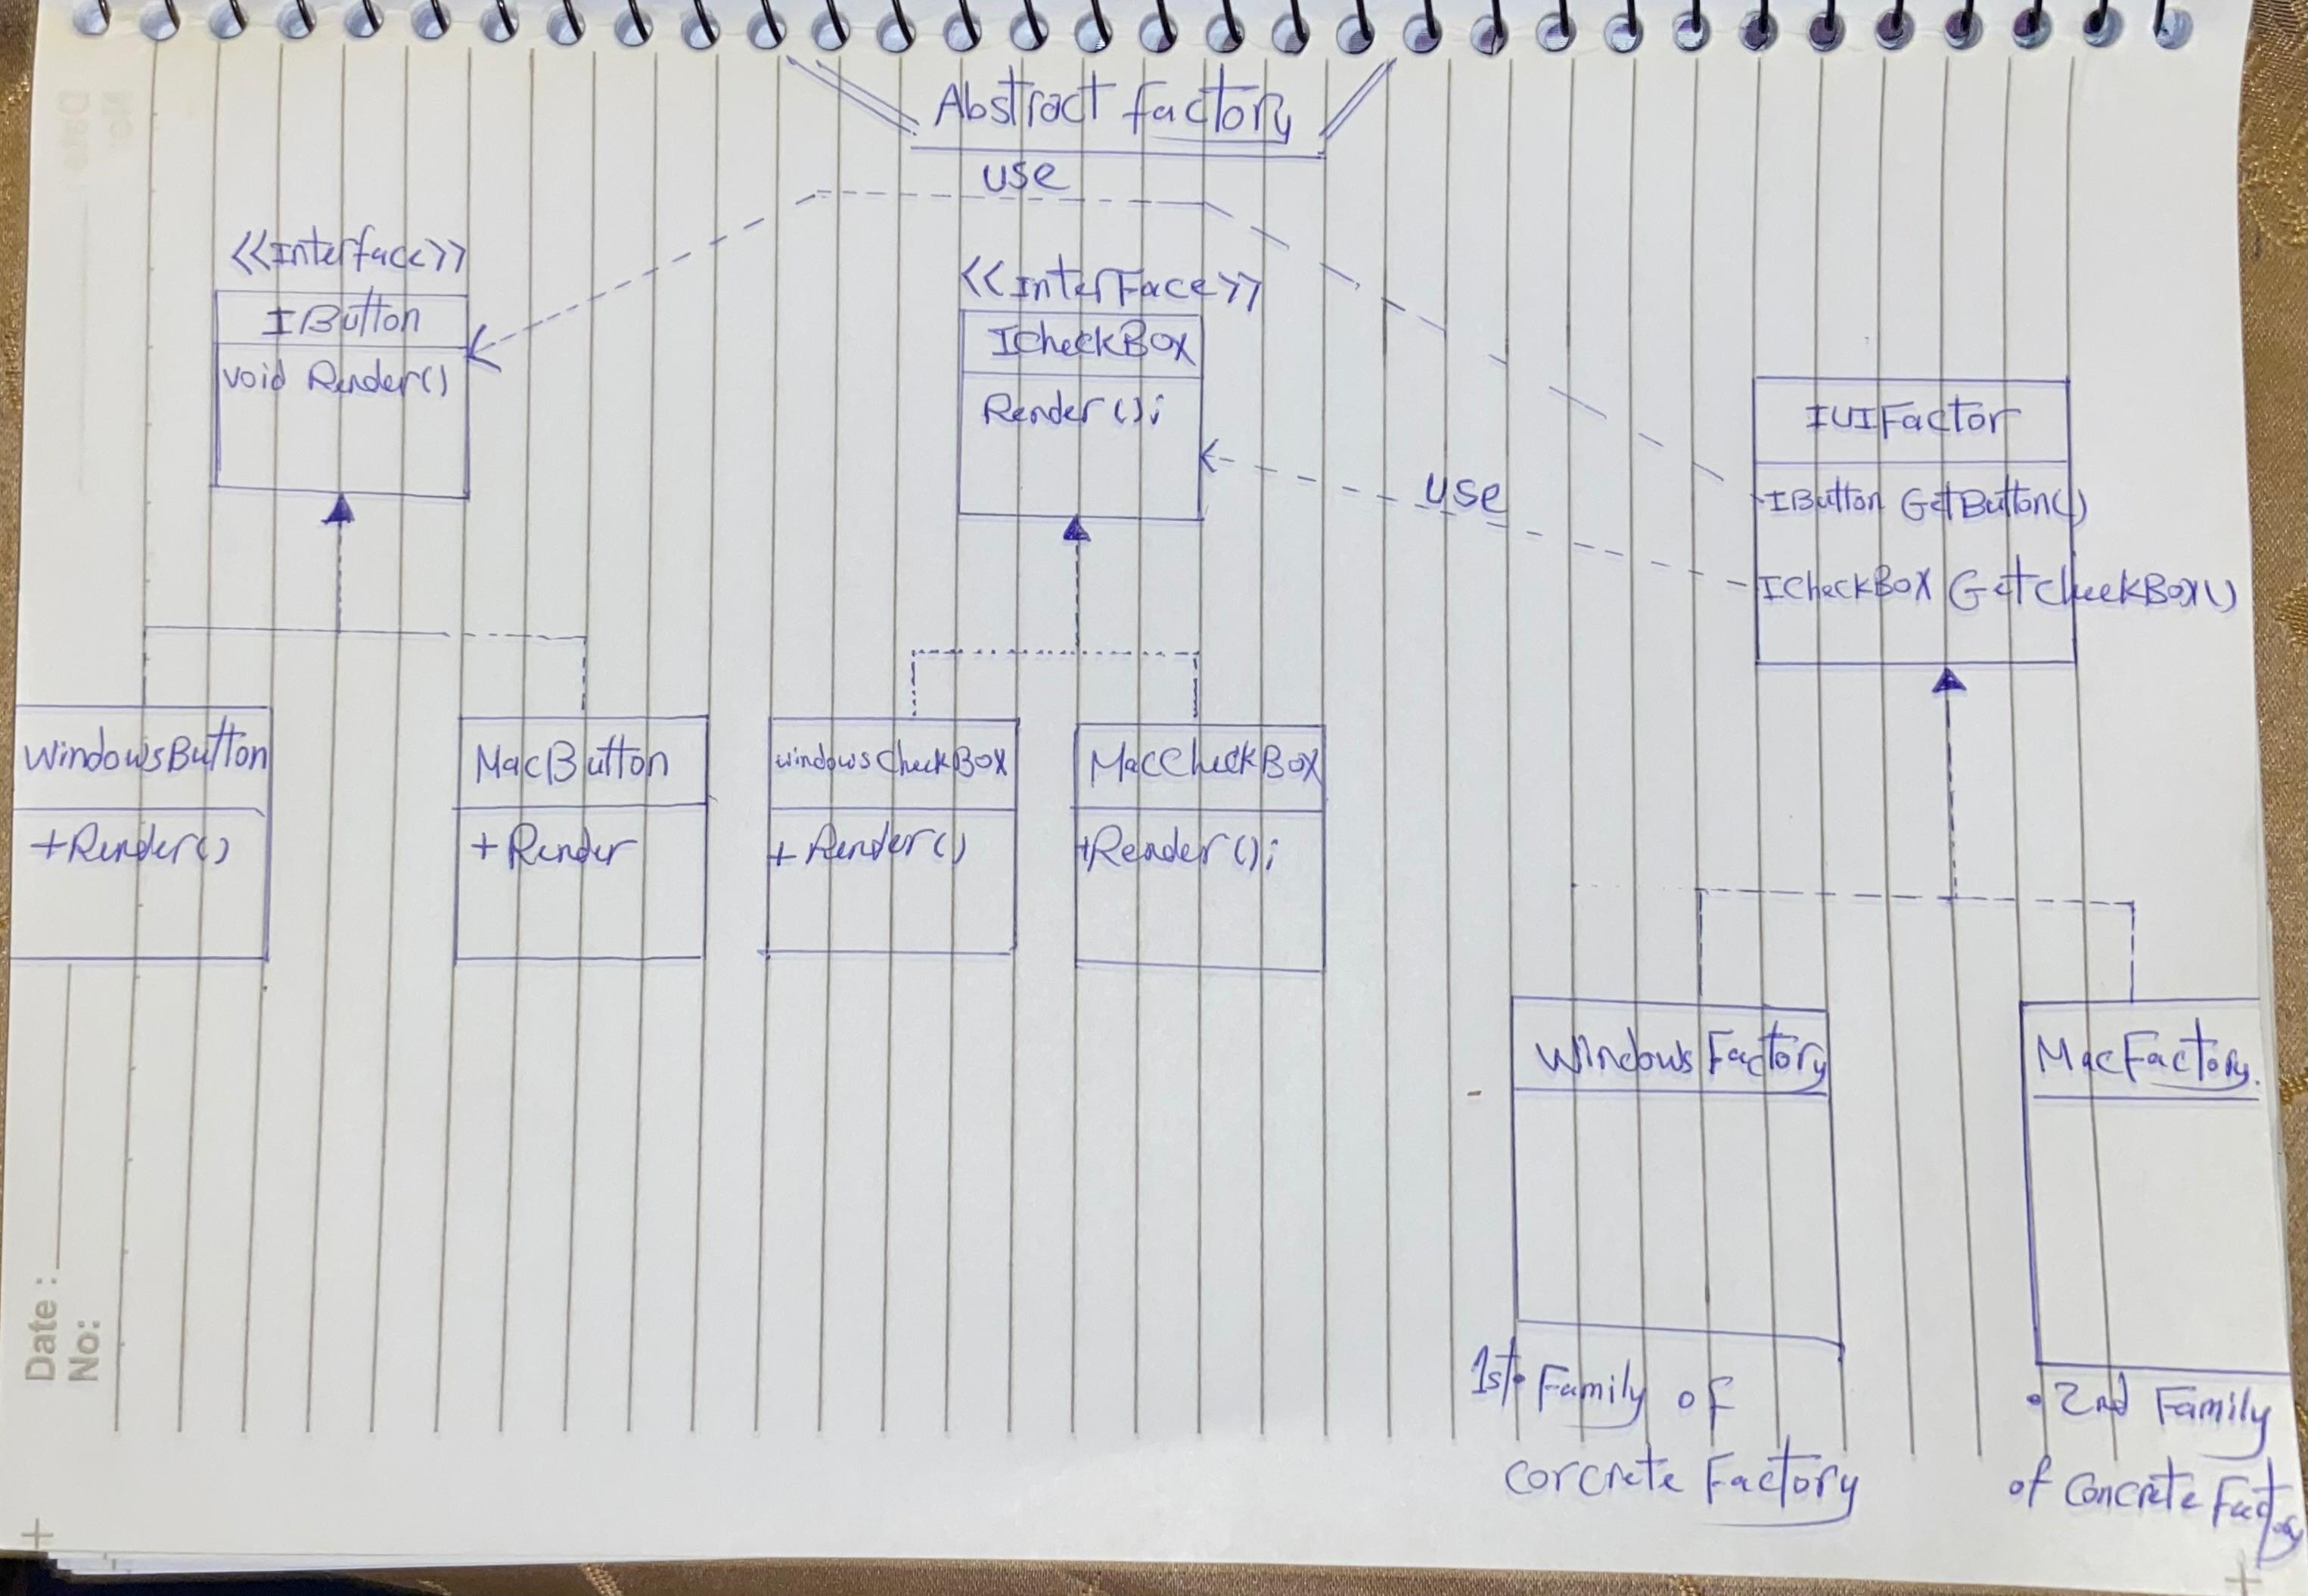 Abstract factory
use
<<Interface>>
IButton
void Render()
<<InterFace>>
ICheckBox
Render();
use
IUIFactor
IButton GetButton()
ICheckBox GetCheckBox()
WindowsButton
+Render()
MacButton
+Render
windowsCheckBox
+Render()
MacCheckBox
+Render();
Windows Factory
MacFactory.
1st. Family of
corcrete Factory
• 2nd Family
of concrete Factory
Date :
No: